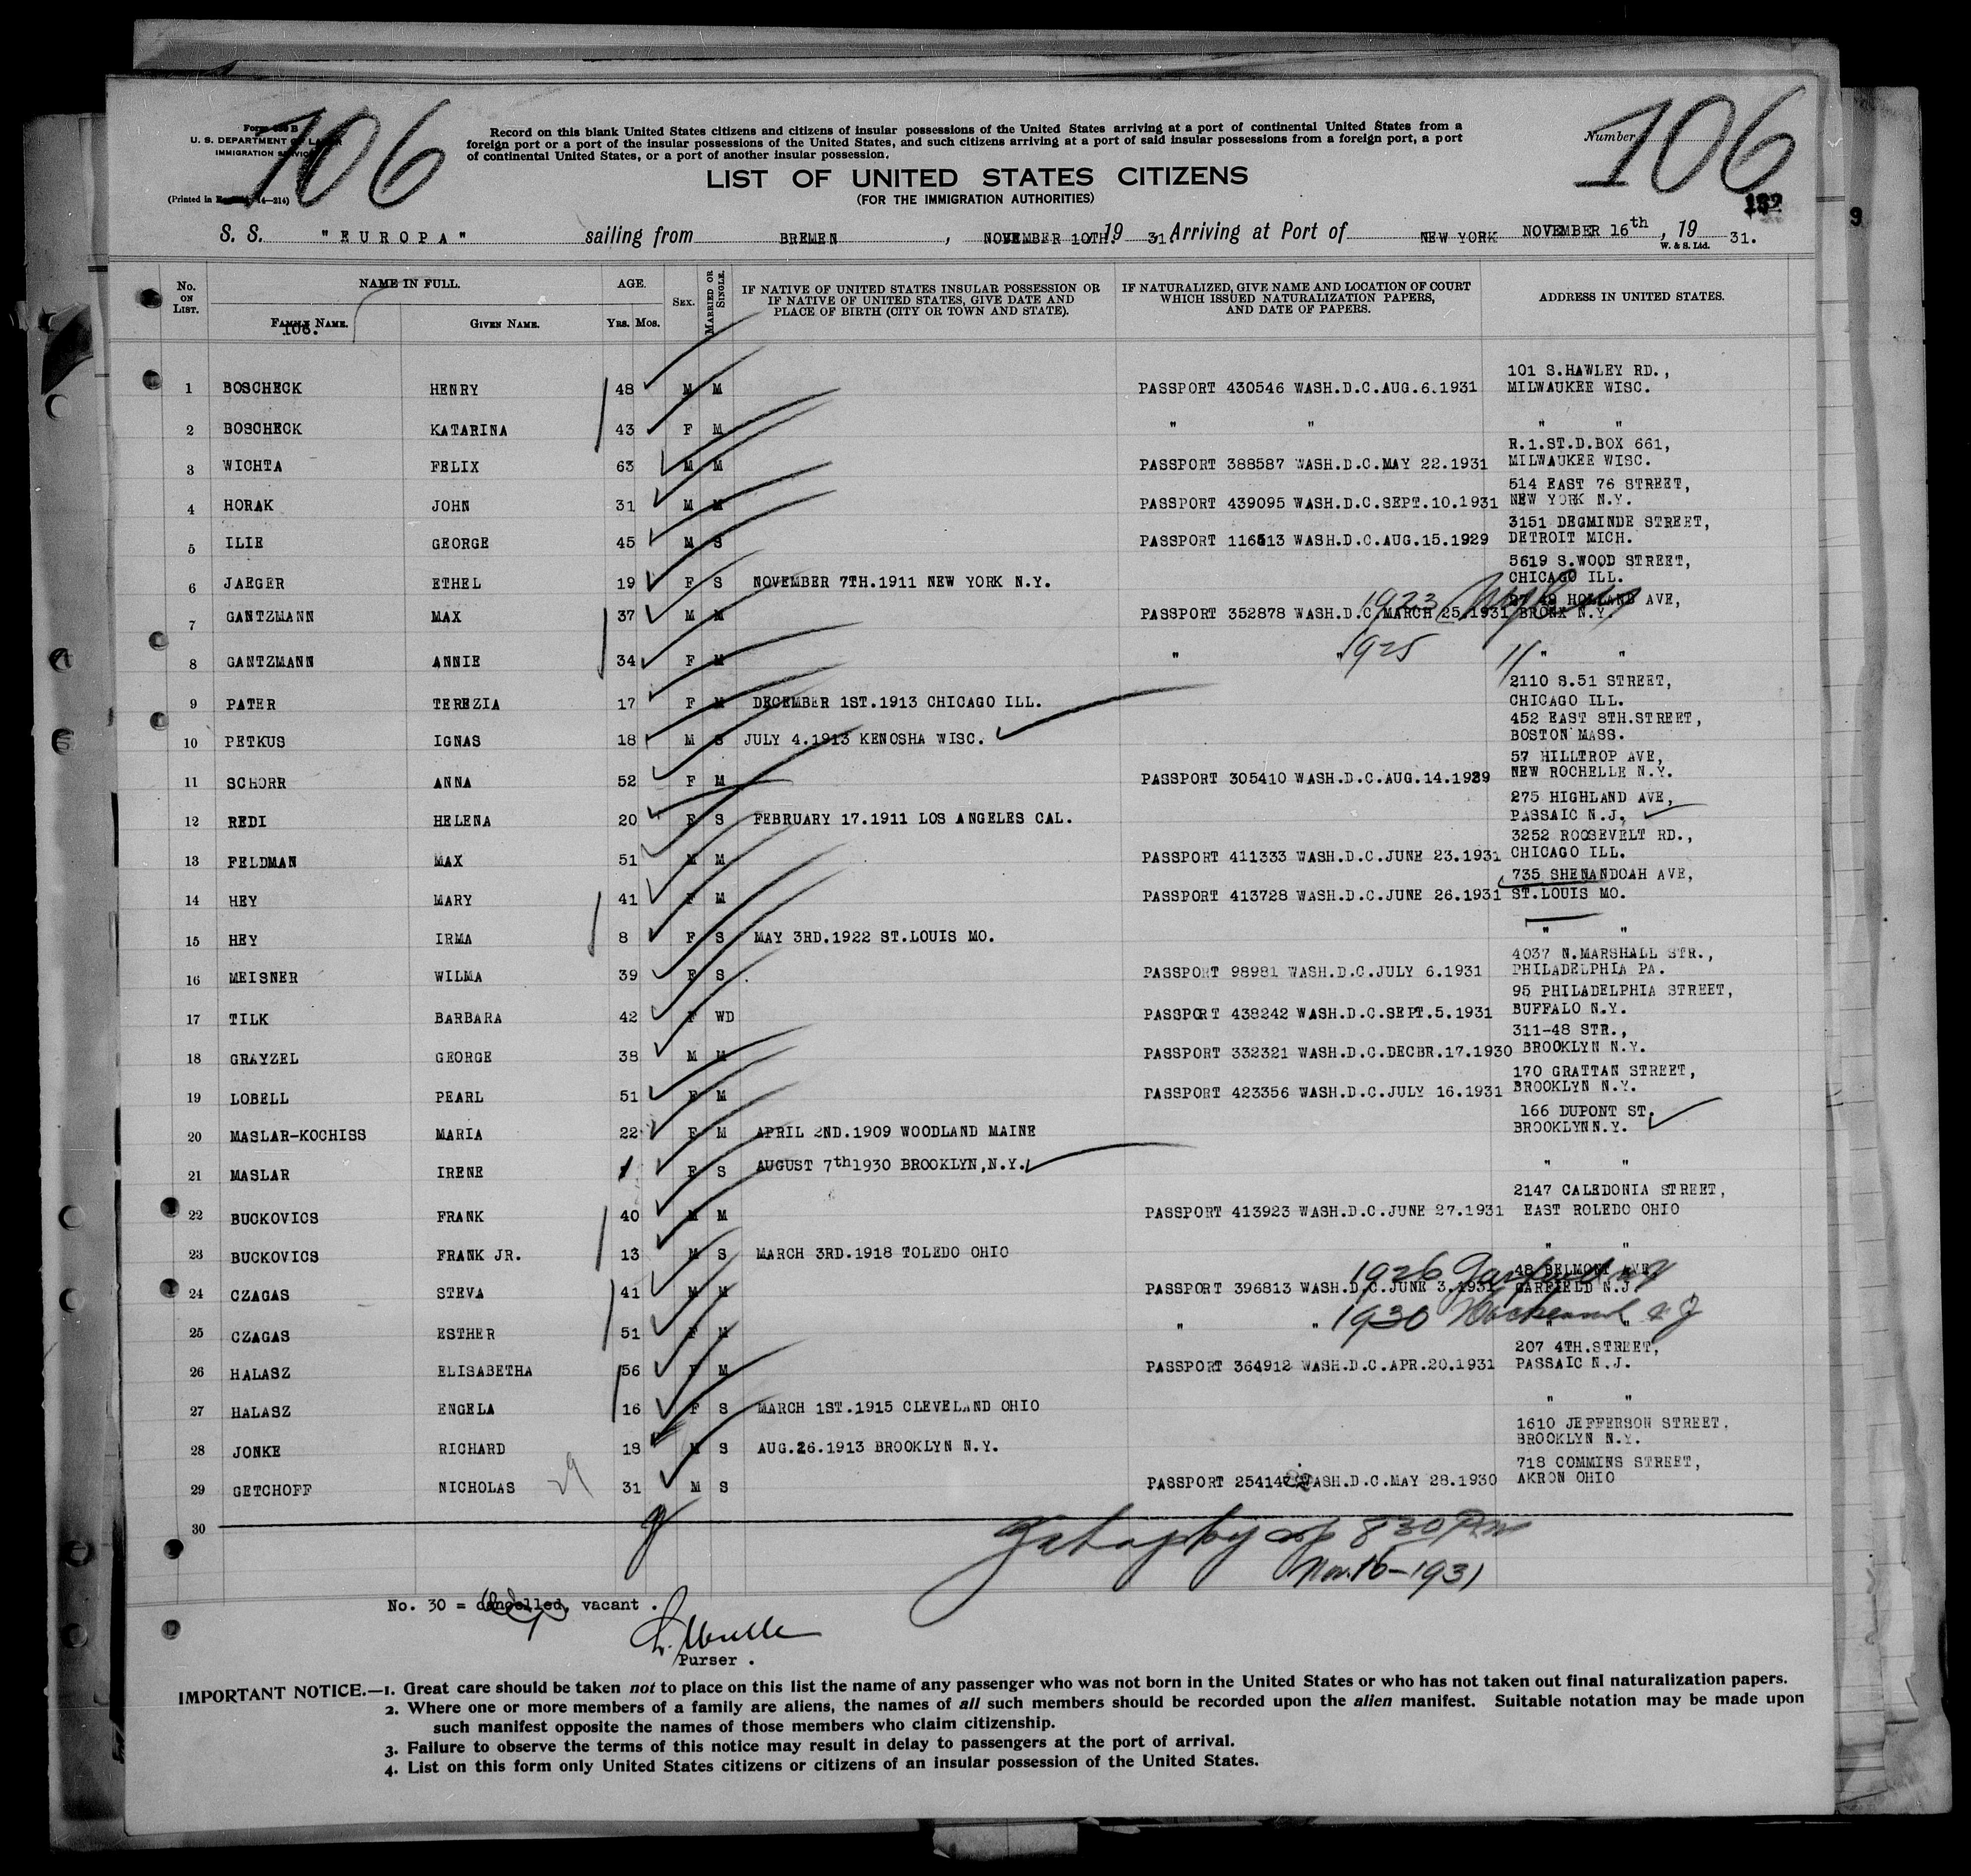 106
106
Form 630 B
U. S. DEPARTMENT OF LABOR
IMMIGRATION SERVICE
(Printed in 14—214)
Record on this blank United States citizens and citizens of insular possessions of the United States arriving at a port of continental United States from a
foreign port or a port of the insular possessions of the United States, and such citizens arriving at a port of said insular possessions from a foreign port, a port
of continental United States, or a port of another insular possession.
Number
LIST OF UNITED STATES CITIZENS
(FOR THE IMMIGRATION AUTHORITIES)
S. S. "EUROPA" sailing from BREMEN, NOVEMBER 10TH. 19 31. Arriving at Port of NEW YORK NOVEMBER 16th, 19 31.
W. & S. Ltd.
9
No. ON LIST.
NAME IN FULL.
FAMILY NAME.
GIVEN NAME.
106.
AGE.
YRS. MOS.
SEX.
MARRIED OR SINGLE.
IF NATIVE OF UNITED STATES INSULAR POSSESSION OR
IF NATIVE OF UNITED STATES, GIVE DATE AND
PLACE OF BIRTH (CITY OR TOWN AND STATE).
IF NATURALIZED, GIVE NAME AND LOCATION OF COURT
WHICH ISSUED NATURALIZATION PAPERS,
AND DATE OF PAPERS.
ADDRESS IN UNITED STATES.
101 S.HAWLEY RD.,
1 BOSCHECK HENRY 48 M M PASSPORT 430546 WASH.D.C.AUG.6.1931 MILWAUKEE WISC.
2 BOSCHECK KATARINA 43 F M " " " "
R.1.ST.D.BOX 661,
3 WICHTA FELIX 63 M M PASSPORT 388587 WASH.D.C.MAY 22.1931 MILWAUKEE WISC.
514 EAST 76 STREET,
4 HORAK JOHN 31 M M PASSPORT 439095 WASH.D.C.SEPT.10.1931 NEW YORK N.Y.
3151 DEGMINDE STREET,
5 ILIE GEORGE 45 M S PASSPORT 116513 WASH.D.C.AUG.15.1929 DETROIT MICH.
5619 S.WOOD STREET,
6 JAEGER ETHEL 19 F S NOVEMBER 7TH.1911 NEW YORK N.Y. CHICAGO ILL.
1923 HOLLAND AVE,
7 GANTZMANN MAX 37 M M PASSPORT 352878 WASH.D.C.MARCH 25.1931 BRONX N.Y.
8 GANTZMANN ANNIE 34 F M " " 1925 " " "
2110 S.51 STREET,
9 PATER TEREZIA 17 F M DECEMBER 1ST.1913 CHICAGO ILL. CHICAGO ILL.
452 EAST 8TH.STREET,
10 PETKUS IGNAS 18 M S JULY 4.1913 KENOSHA WISC. BOSTON MASS.
57 HILLTROP AVE,
11 SCHORR ANNA 52 F M PASSPORT 305410 WASH.D.C.AUG.14.1929 NEW ROCHELLE N.Y.
275 HIGHLAND AVE,
12 REDI HELENA 20 F S FEBRUARY 17.1911 LOS ANGELES CAL. PASSAIC N.J.
3252 ROOSEVELT RD.,
13 FELDMAN MAX 51 M M PASSPORT 411333 WASH.D.C.JUNE 23.1931 CHICAGO ILL.
735 SHENANDOAH AVE,
14 HEY MARY 41 F M PASSPORT 413728 WASH.D.C.JUNE 26.1931 ST.LOUIS MO.
15 HEY IRMA 8 F S MAY 3RD.1922 ST.LOUIS MO. " "
4037 N.MARSHALL STR.,
16 MEISNER WILMA 39 F S PASSPORT 98981 WASH.D.C.JULY 6.1931 PHILADELPHIA PA.
95 PHILADELPHIA STREET,
17 TILK BARBARA 42 F WD PASSPORT 438242 WASH.D.C.SEPT.5.1931 BUFFALO N.Y.
311-48 STR.,
18 GRAYZEL GEORGE 38 M M PASSPORT 332321 WASH.D.C.DECBR.17.1930 BROOKLYN N.Y.
170 GRATTAN STREET,
19 LOBELL PEARL 51 F M PASSPORT 423356 WASH.D.C.JULY 16.1931 BROOKLYN N.Y.
166 DUPONT ST.
20 MASLAR-KOCHISS MARIA 22 F M APRIL 2ND.1909 WOODLAND MAINE BROOKLYN N.Y.
21 MASLAR IRENE F S AUGUST 7th 1930 BROOKLYN,N.Y. " "
2147 CALEDONIA STREET,
22 BUCKOVICS FRANK 40 M M PASSPORT 413923 WASH.D.C.JUNE 27.1931 EAST ROLEDO OHIO
23 BUCKOVICS FRANK JR. 13 M S MARCH 3RD.1918 TOLEDO OHIO " "
1926 Garfield NJ 48 BELMONT AVE
24 CZAGAS STEVA 41 M M PASSPORT 396813 WASH.D.C.JUNE 3.1931 GARFIELD N.J.
25 CZAGAS ESTHER 51 F M " " 1930 " "
207 4TH.STREET,
26 HALASZ ELISABETHA 56 F M PASSPORT 364912 WASH.D.C.APR.20.1931 PASSAIC N.J.
27 HALASZ ENGELA 16 F S MARCH 1ST.1915 CLEVELAND OHIO " "
1610 JEFFERSON STREET,
28 JONKE RICHARD 18 M S AUG.26.1913 BROOKLYN N.Y. BROOKLYN N.Y.
718 COMMINS STREET,
29 GETCHOFF NICHOLAS 29 31 M S PASSPORT 254147 WASH.D.C.MAY 28.1930 AKRON OHIO
30
830 PM
Nov. 16-1931
No. 30 = cancelled, vacant .
Purser .
IMPORTANT NOTICE.—1. Great care should be taken not to place on this list the name of any passenger who was not born in the United States or who has not taken out final naturalization papers.
2. Where one or more members of a family are aliens, the names of all such members should be recorded upon the alien manifest. Suitable notation may be made upon
such manifest opposite the names of those members who claim citizenship.
3. Failure to observe the terms of this notice may result in delay to passengers at the port of arrival.
4. List on this form only United States citizens or citizens of an insular possession of the United States.